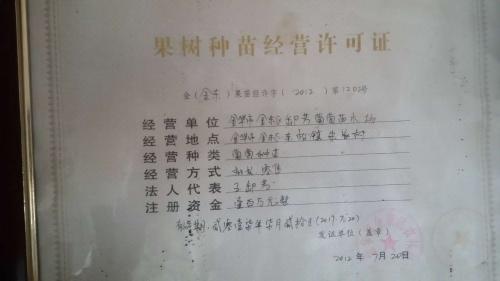 果树种苗经营许可证
金(金东)果苗经许字(2012)第1202号
经营单位 金华市金东区邵芳葡萄苗木场
经营地点 金华市金东区东孝镇
经营种类 葡萄种苗
经营方式 批发零售
法人代表 邵芳
注册资金 壹百万元整
有效期:贰零壹柒年柒月贰拾日(2017.7.20)
发证单位(盖章)
2012年7月20日